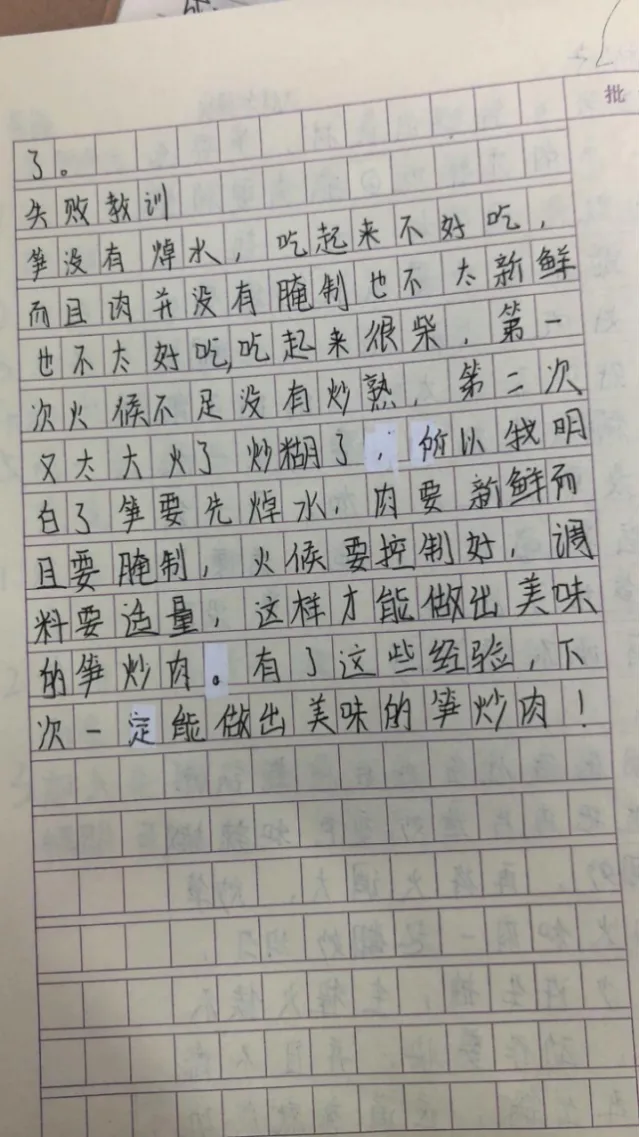 批
了。
失败教训
笋没有焯水，吃起来不好吃，
而且肉并没有腌制也不太新鲜
也不太好吃,吃起来很柴，第一
次火候不足没有炒熟，第二次
又太大火了炒糊了，所以我明
白了笋要先焯水，肉要新鲜而
且要腌制，火候要控制好，调
料要适量，这样才能做出美味
的笋炒肉。有了这些经验，下
次一定能做出美味的笋炒肉！